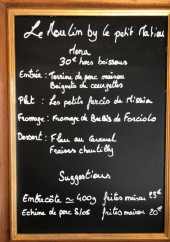 Le Moulin by le petit Mathieu
Menu
30€ hors boissons
Entrée: Terrine de porc maison
Beignets de courgettes
Plat: Les petits farcis de Missia
Fromage: Fromage de Brebis de Forciolo
Dessert: Flan au caramel
Fraises chantilly
Suggestions
Entrecôte ≃ 400g frites maison
Echine de porc frites maison 20€